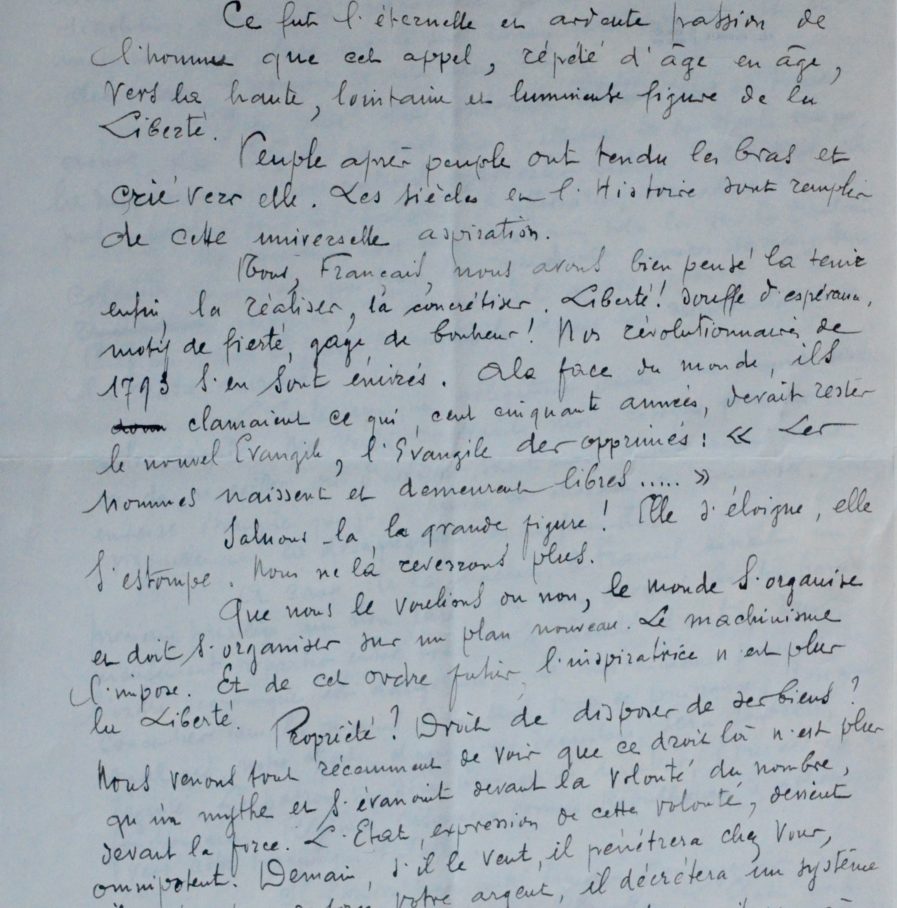 Ce fut l'éternelle et ardente passion de
l'homme que cet appel, répété d'âge en âge,
vers la haute, lointaine et lumineuse figure de la
Liberté.
Peuple après peuple ont tendu les bras et
crié vers elle. Les siècles et l'Histoire sont remplis
de cette universelle aspiration.
Nous, Français, nous avons bien pensé la tenir
enfin, la réaliser, la concrétiser. Liberté! Souffle d'espérance,
motif de fierté, gage de bonheur! Nos révolutionnaires de
1793 s'en sont enivrés. A la face du monde, ils
clamaient ce qui, cent cinquante années, devait rester
le nouvel Evangile, l'Evangile des opprimés: « Les
hommes naissent et demeurent libres ..... »
Saluons-la la grande figure! Elle s'éloigne, elle
s'estompe. Nous ne la reverrons plus.
Que nous le voulions ou non, le monde s'organise
et doit s'organiser sur un plan nouveau. Le machinisme
l'impose. Et de cet ordre futur, l'inspiratrice n'est plus
la Liberté.
Propriété? Droit de disposer de ses biens?
Nous venons tout récemment de voir que ce droit là n'est plus
qu'un mythe et s'évanouit devant la volonté du nombre,
devant la force. L'Etat, expression de cette volonté, devient
omnipotent. Demain, s'il le veut, il pénétrera chez vous,
votre argent, il décrétera un système